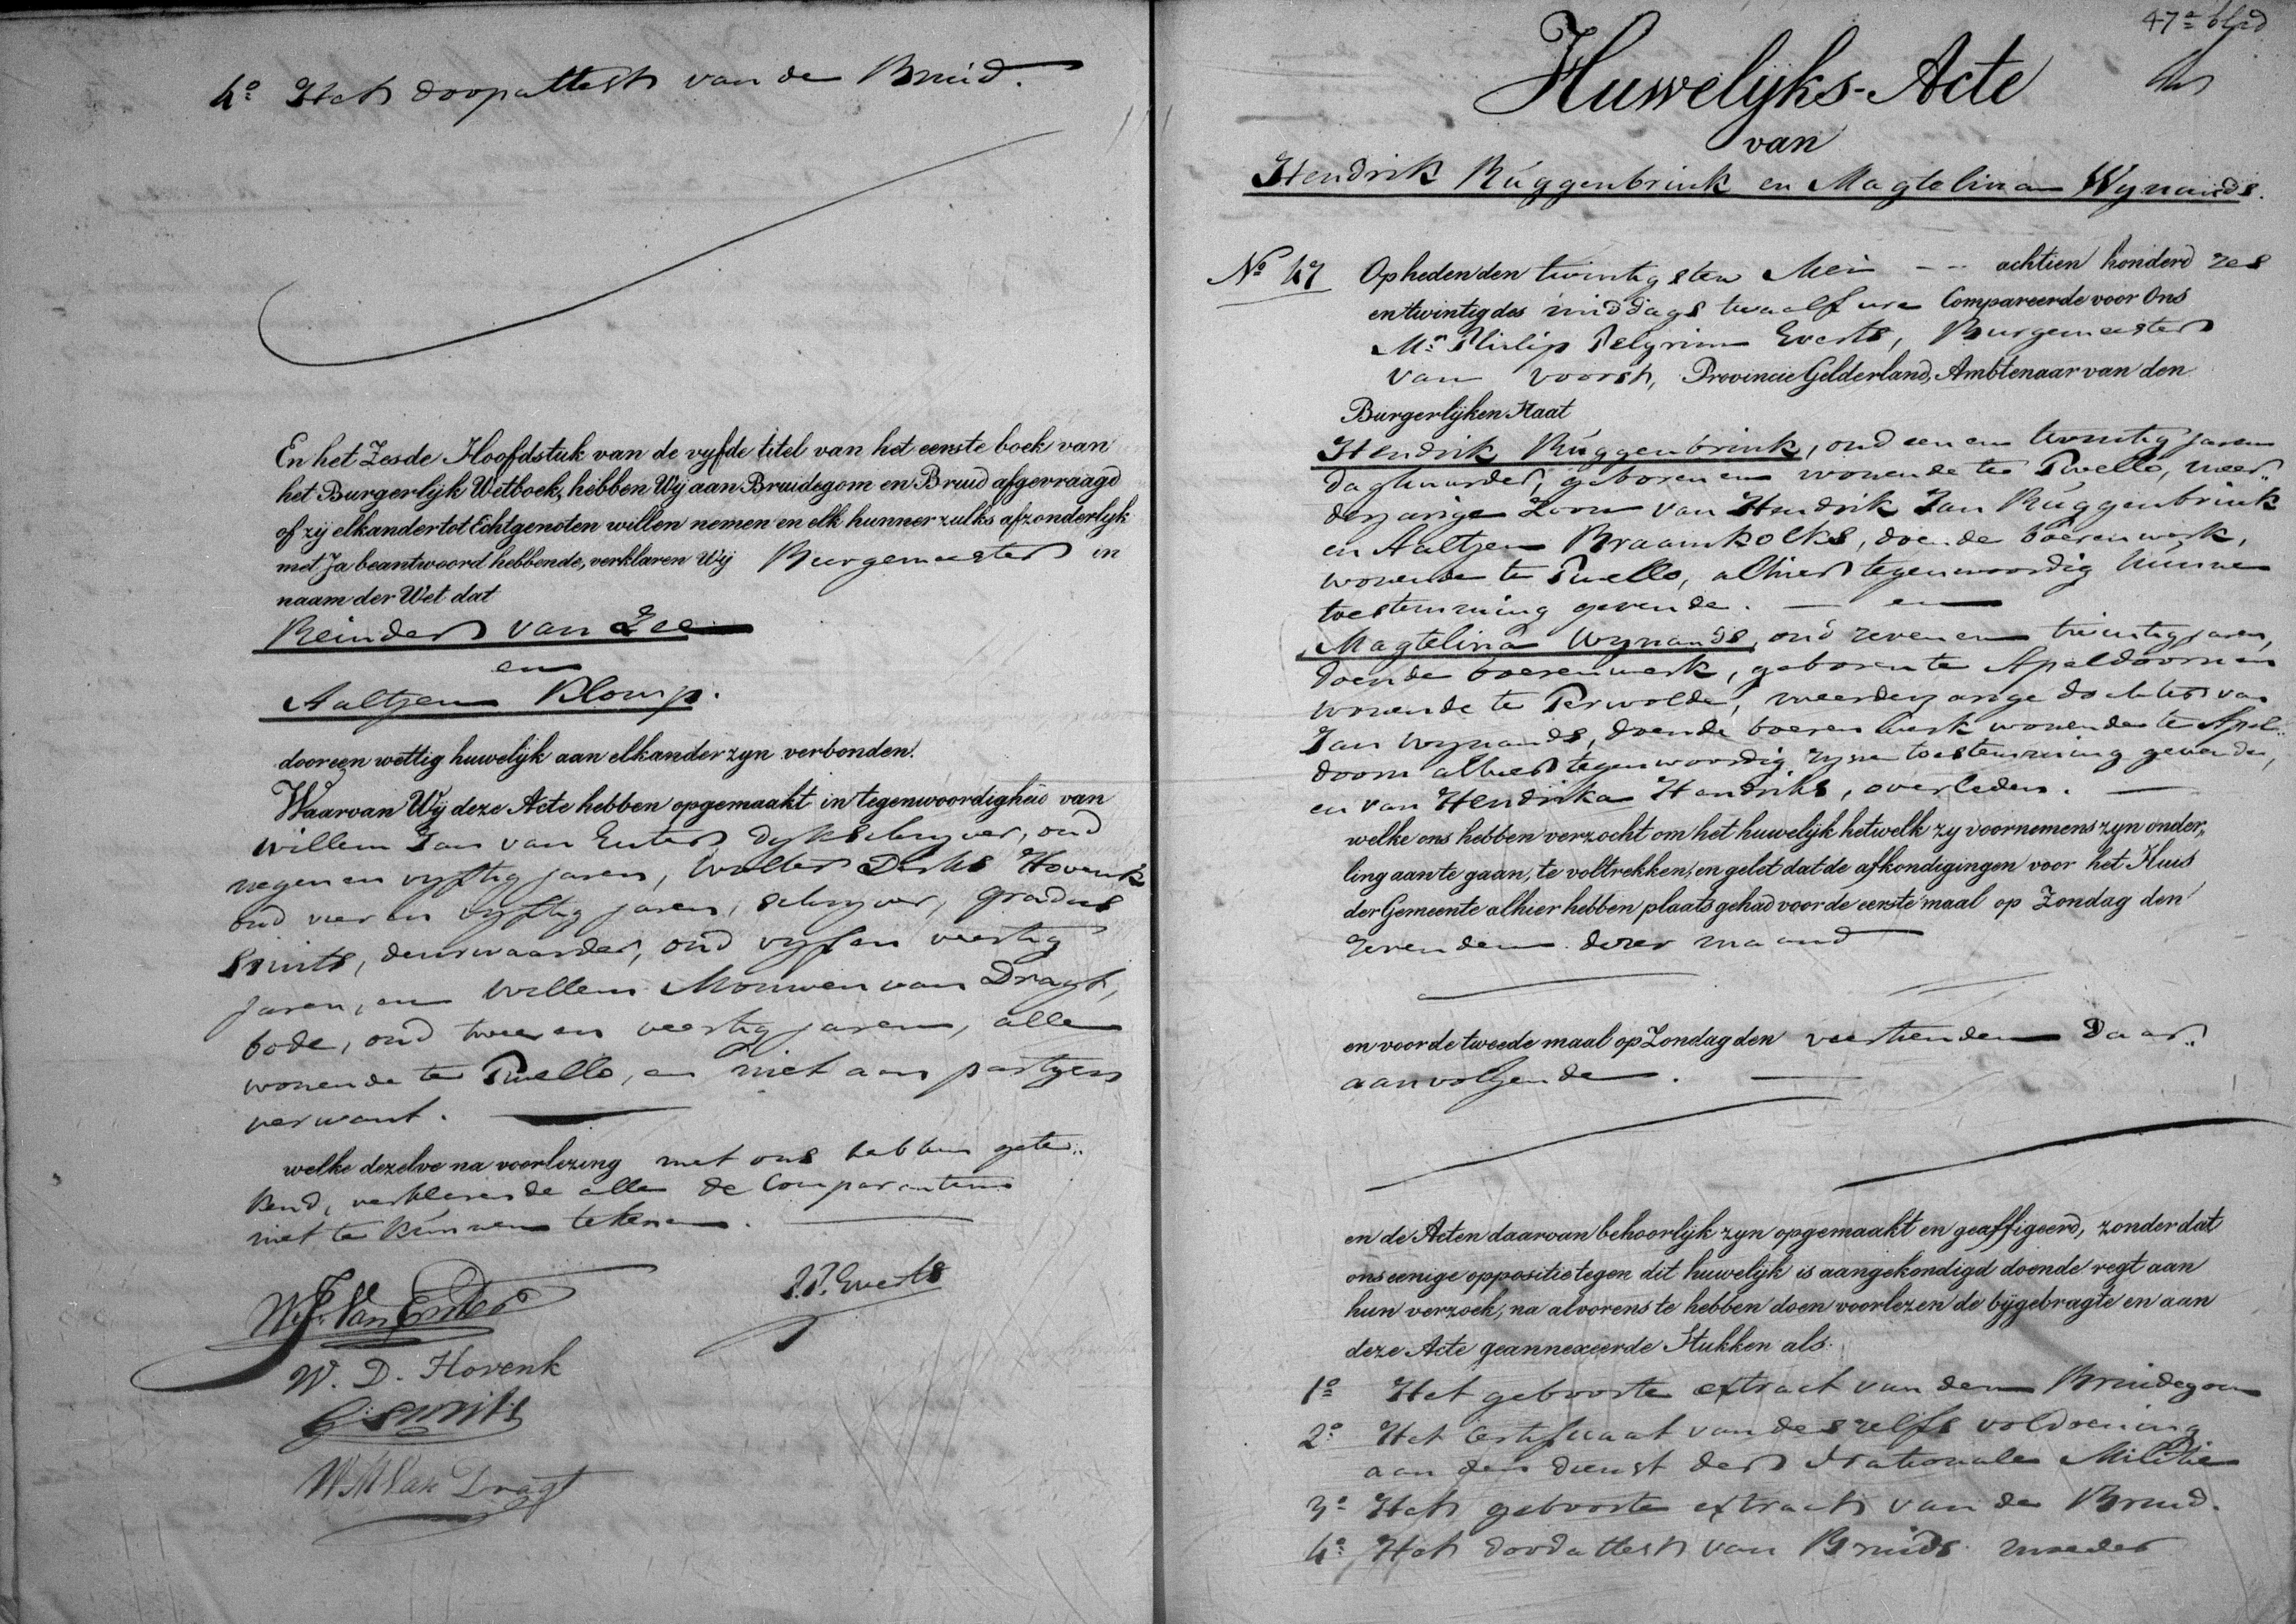 4º Het doopattest van de Bruid.
En het Zesde Hoofdstuk van de vyfde titel van het eerste boek van
het Burgerlijk Wetboek, hebben Wij aan Bruidegom en Bruid afgevraagd
of zij elkander tot Echtgenoten willen nemen en elk hunner zulks afzonderlyk
met Ja beantwoord hebbende, verklaren Wij Burgemeester in
naam der Wet dat
Reinder van Zee
en
Aaltjen Klomp.
door een wettig huwelijk aan elkander zyn verbonden.
Waarvan Wij deze Acte hebben opgemaakt in tegenwoordigheid van
Willem Jan van Enter dykschryver, oud
negen en vyftig jaren, Wolter Derks Hovenk
oud vier en vyftig jaren, schryver, Gradus
Smits, deurwaarder, oud vyf en veertig
jaren, en Willem Mouwen van Dragt,
bode, oud twee en veertig jaren, allen
wonende te Twello, en niet aan partyen
verwant.
welke dezelve na voorlezing met ons hebben gete„
kend, verklarende alle de Comparanten
niet te kunnen tekenen.
W.J. Van Enter
P.P. Everts
W. D. Hovenk
G. Smits
W M Van Dragt
47e blad
Huwelijks-Acte
van
Hendrik Ruggenbrink en Magtelina Wynands.
No 47 Op heden den twintigsten Mei -- achtien honderd zes
en twintig des middags twaalf ure Compareerde voor Ons
Mr Philip Pelgrim Everts, Burgemeester
van Voorst, Provincie Gelderland, Ambtenaar van den
Burgerlijken Staat
Hendrik Ruggenbrink, oud een en twintig jaren
daghuurder, geboren en wonende te Twello, meer„
derjarige Zoon van Hendrik Jan Ruggenbrink
en Aaltjen Braamkolks, doende boerenwerk,
wonende te Twello, alhier tegenwoordig hunne
toestemming gevende. — en
Magtelina Wynands, oud zeven en twintig jaren,
doende boerenwerk, geboren te Apeldoorn en
wonende te Terwolde, meerderjarige dochter van
Jan Wynands, doende boerenwerk wonende te Apel„
doorn alhier tegenwoordig zyne toestemming gevende,
en van Hendrika Hendriks, overleden.
welke ons hebben verzocht om het huwelijk hetwelk zy voornemens zyn onder„
ling aan te gaan, te voltrekken, en gelet dat de afkondigingen voor het Huis
der Gemeente alhier hebben plaats gehad voor de eerste maal op Zondag den
zevenden dezer maand
en voor de tweede maal op Zondag den veertienden Daar„
aanvolgende.
en de Acten daarvan behoorlijk zyn opgemaakt en geaffigeerd, zonder dat
ons eenige oppositie tegen dit huwelijk is aangekondigd doende regt aan
hun verzoek, na alvorens te hebben doen voorlezen de bijgebragte en aan
deze Acte geannexeerde Stukken als:
1º Het geboorte extract van den Bruidegom
2º Het Certificaat van deszelfs voldoening
aan den dienst der Nationale Militie
3º Het geboorte extract van de Bruid.
4º Het doodattest van Bruids moeder